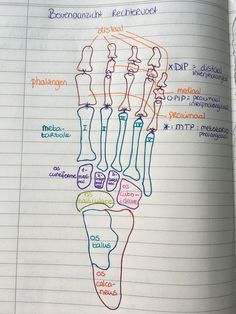 Bovenaanzicht Rechtervoet
distaal
x DIP = distaal
interphalangeaal
phalangen
mediaal
o PIP = proximaal
interphalangeaal
proximaal
* = MTP = metatarso
phalangeaal
meta-
tarsale
I
II
III
IV
V
os
cuneiforme
os
cubo-
ideum
os
talus
os
calca-
neus